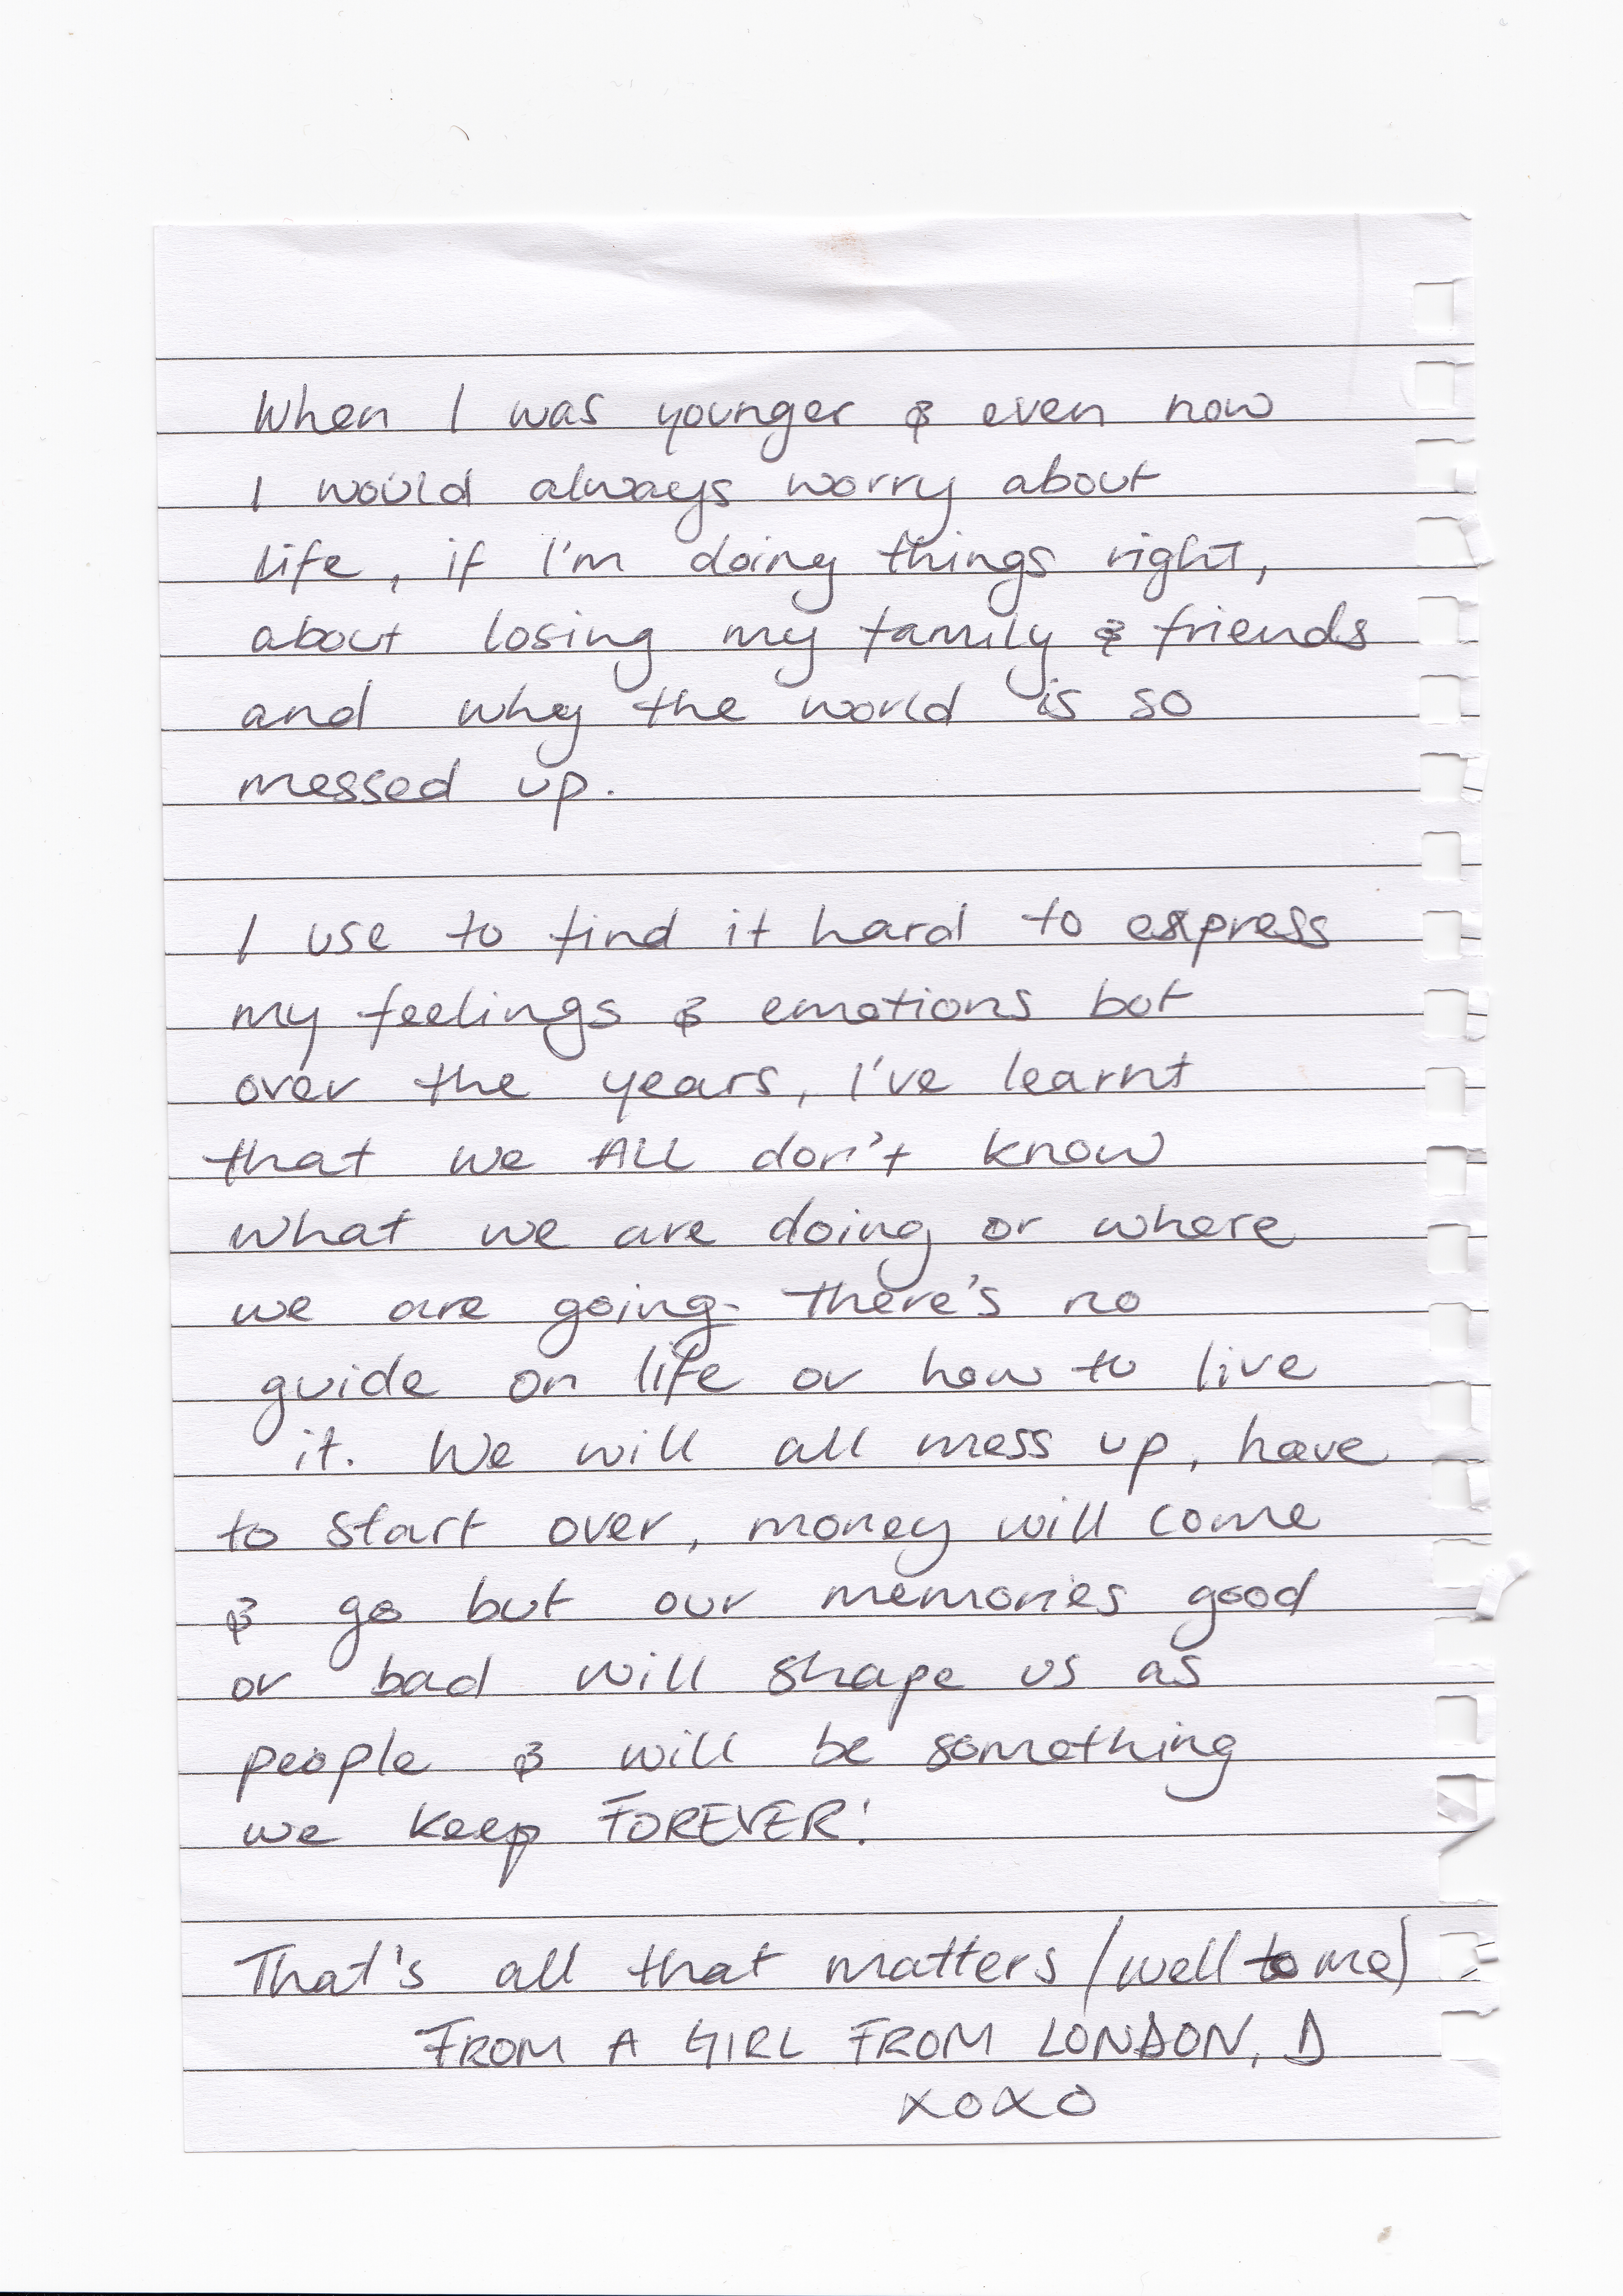 When I was younger & even now
I would always worry about
life, if I'm doing things right,
about losing my family & friends
and why the world is so
messed up.
I use to find it hard to express
my feelings & emotions but
over the years, I've learnt
that we ALL don't know
what we are doing or where
we are going. there's no
guide on life or how to live
it. We will all mess up, have
to start over, money will come
& go but our memories good
or bad will shape us as
people & will be something
we keep FOREVER!
That's all that matters (well to me)
FROM A GIRL FROM LONDON, D
xoxo